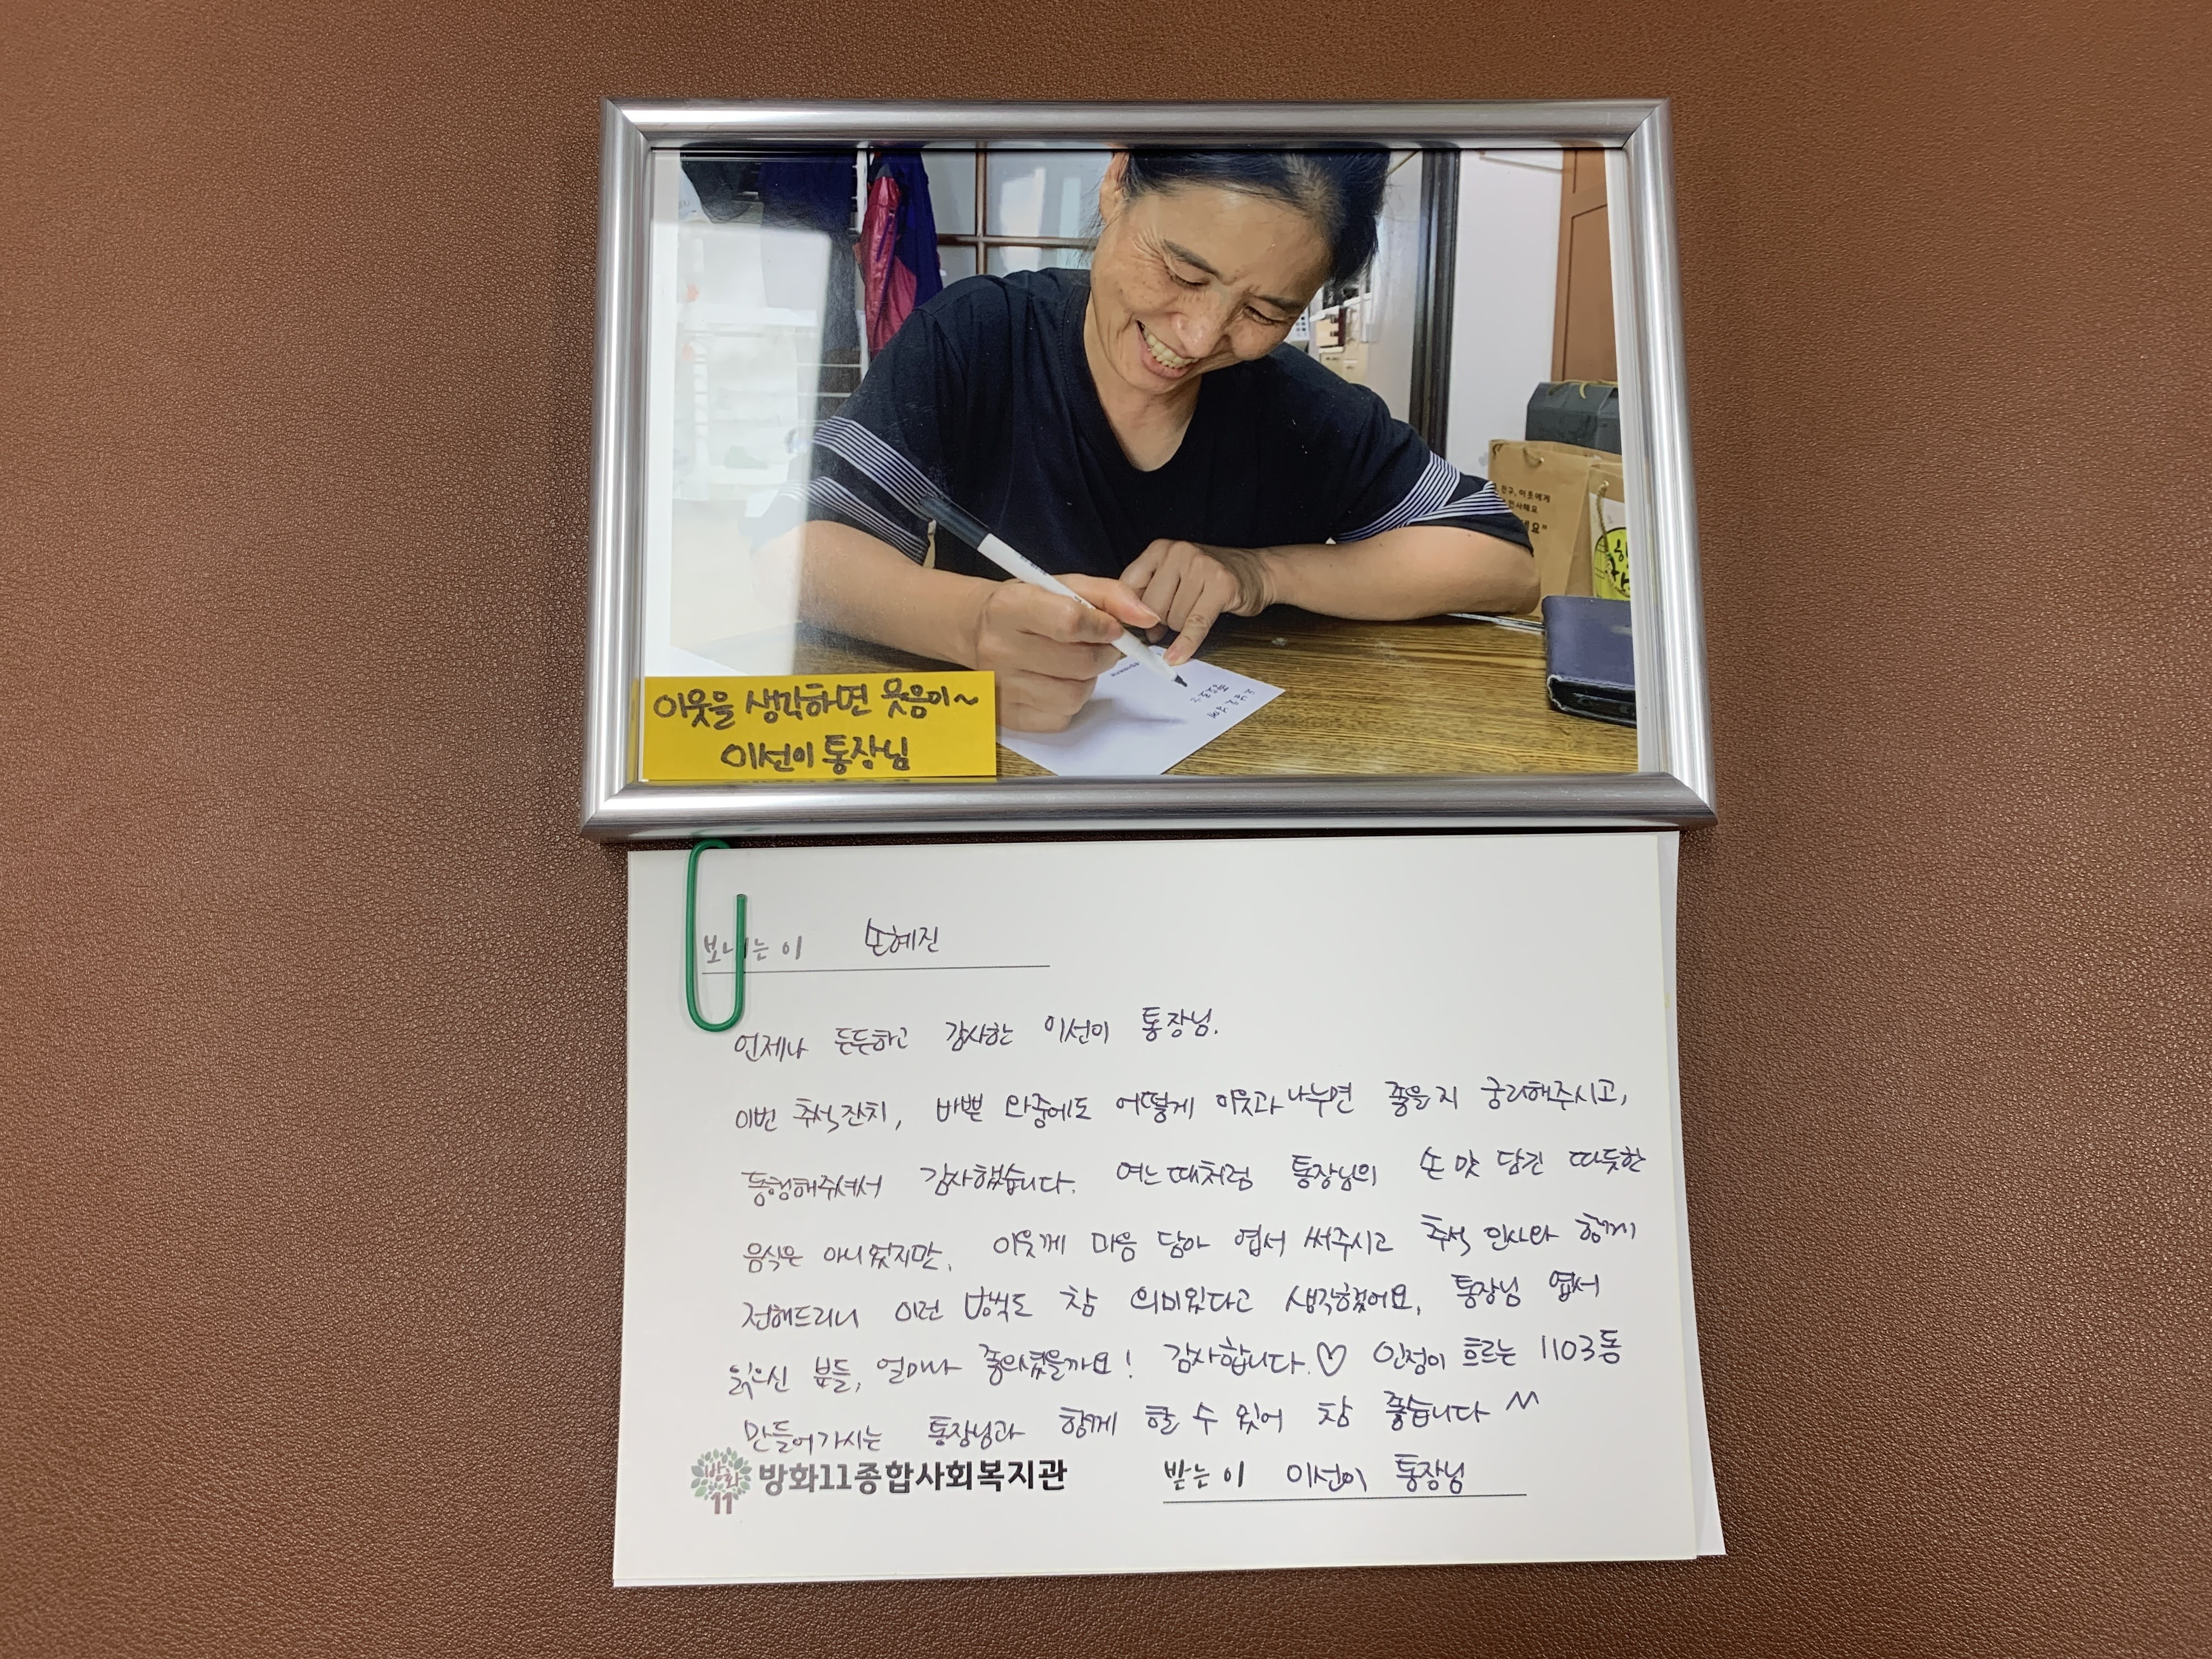 친구, 이웃에게
인사해요
이웃을 생각하면 웃음이~
이선이 통장님
보내는 이 손혜진
언제나 든든하고 감사한 이선이 통장님.
이번 추석 잔치, 바쁜 와중에도 어떻게 이웃과 나누면 좋을지 궁리해주시고,
동행해주셔서 감사했습니다. 여느 때처럼 통장님의 손맛 담긴 따듯한
음식은 아니었지만, 이웃께 마음 담아 엽서 써주시고 추석 인사와 함께
전해드리니 이런 방식도 참 의미있다고 생각했어요. 통장님 엽서
읽으신 분들, 얼마나 좋으셨을까요! 감사합니다.♡ 인정이 흐르는 1103동
만들어가시는 통장님과 함께 할 수 있어 참 좋습니다 ^^
방화11 방화11종합사회복지관 받는 이 이선이 통장님